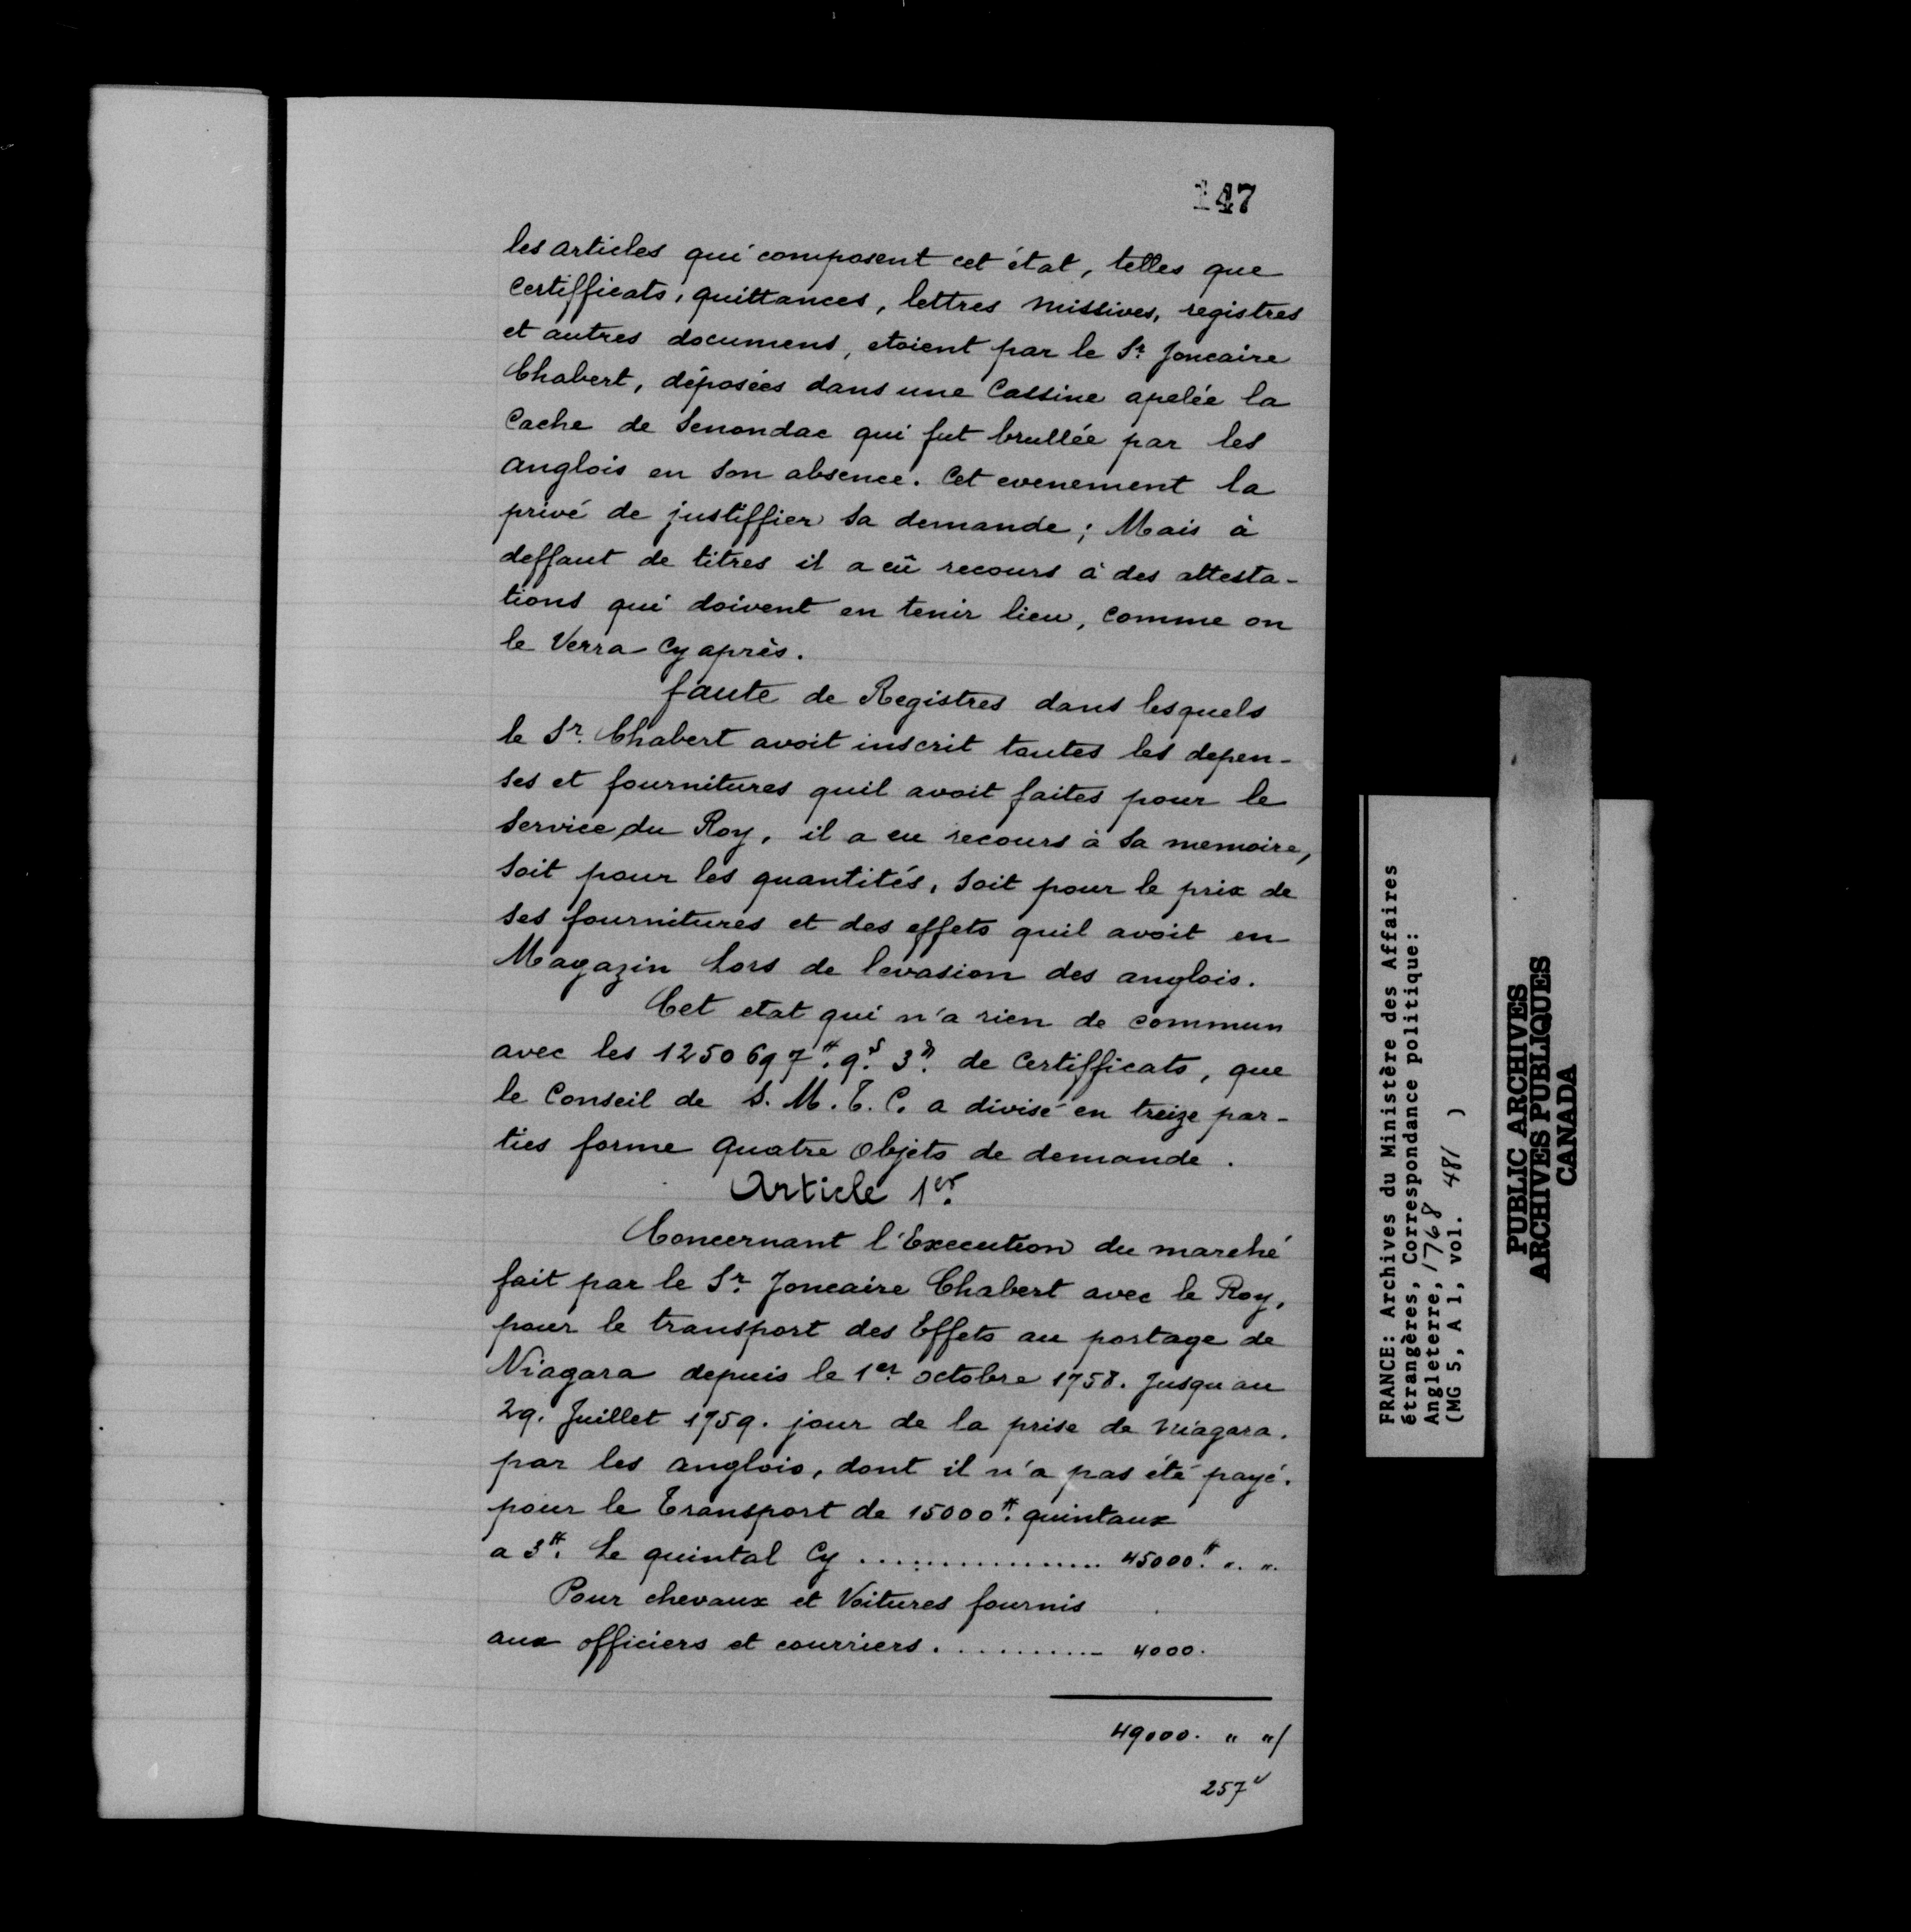 147
les articles qui composent cet état, telles que
Certifficats, quittances, lettres missives, registres
et autres documens, etoient par le Sr. Joncaire
Chabert, déposées dans une Cassine apelée la
Cache de Senondac qui fut brullée par les
anglois en son absence. Cet evenement la
privé de justiffier sa demande; Mais à
deffaut de titres il a eû recours à des attesta-
tions qui doivent en tenir lieu, comme on
le Verra Cy après.
faute de Registres dans lesquels
le Sr. Chabert avoit inscrit toutes les depen-
ses et fournitures quil avoit faites pour le
Service du Roy, il a eu recours à sa memoire,
soit pour les quantités, soit pour le prix de
ses fournitures et des effets quil avoit en
Magazin Lors de levasion des anglois.
Cet etat qui n'a rien de commun
avec les 1250697#. 9s. 3d. de Certifficats, que
le Conseil de S. M. T. C. a divisé en treize par-
ties forme quatre Objets de demande.
Article 1er.
Concernant l'Execution du marché
fait par le Sr. Joncaire Chabert avec le Roy,
pour le transport des Effets au portage de
Niagara depuis le 1er. octobre 1758. Jusqu au
29. Juillet 1759. jour de la prise de Niagara.
par les anglois, dont il n'a pas été payé.
pour le Transport de 15000#. quintaux
a 3#. Le quintal Cy .................. 45000#. ". ".
Pour chevaux et Voitures fournis
aux officiers et courriers. .......... 4000.
49000. " "/
257
FRANCE: Archives du Ministère des Affaires
étrangères, Correspondance politique:
Angleterre, 1768
(MG 5, A 1, vol. 481 )
PUBLIC ARCHIVES
ARCHIVES PUBLIQUES
CANADA